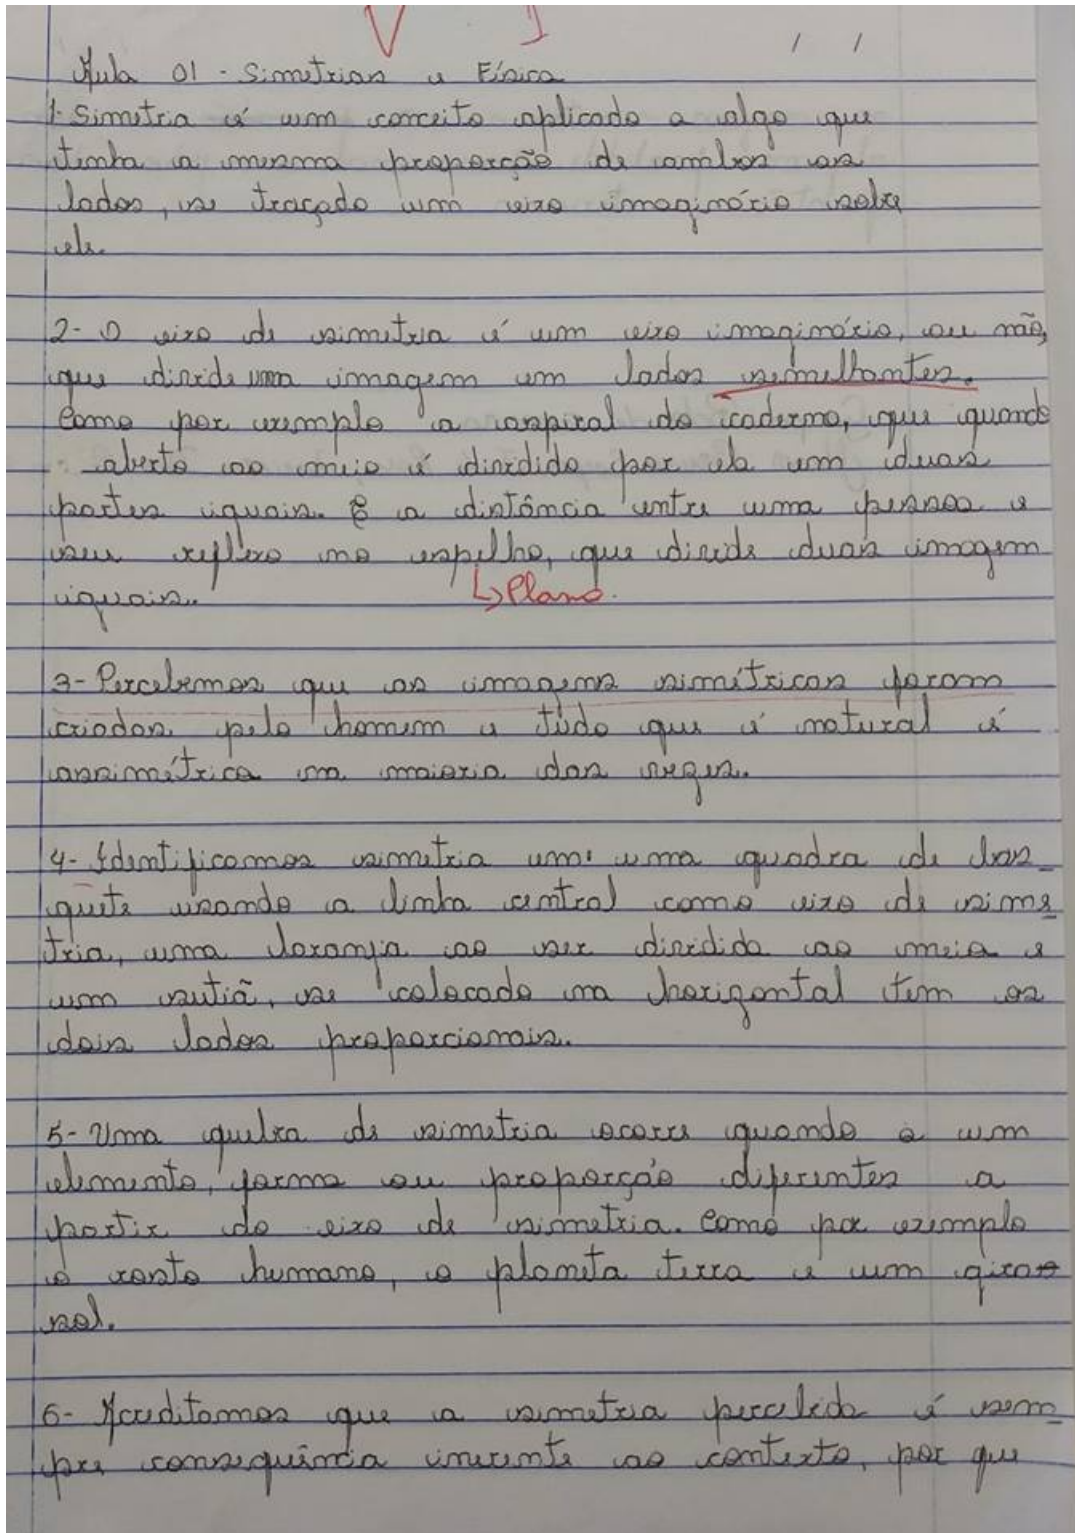 Aula 01 - Simetrias e Física
1- Simetria é um conceito aplicado a algo que
tenha a mesma proporção de ambos os
lados, se traçado um eixo imaginário sobre
ele.
2- O eixo de simetria é um eixo imaginário, ou não,
que divide uma imagem em lados semelhantes.
Como por exemplo a espiral do caderno, que quando
aberto ao meio é dividido por ela em duas
partes iguais. E a distância entre uma pessoa e
seu reflexo no espelho, que divide duas imagem
iguais.
↳ Plano.
3- Percebemos que as imagens simétricas foram
criadas pelo homem e tudo que é natural é
assimétrica na maioria das vezes.
4- Identificamos simetria em: uma quadra de bas_
quete usando a linha central como eixo de sime_
tria, uma laranja ao ser dividida ao meio e
um sutiã, se colocado na horizontal tem os
dois lados proporcionais.
5- Uma quebra de simetria ocorre quando a um
elemento, forma ou proporção diferentes a
partir do eixo de simetria. Como por exemplo
o rosto humano, o planeta terra e um giras
sol.
6- Acreditamos que a simetria percebida é sem_
pre consequência inerente ao contexto, por que